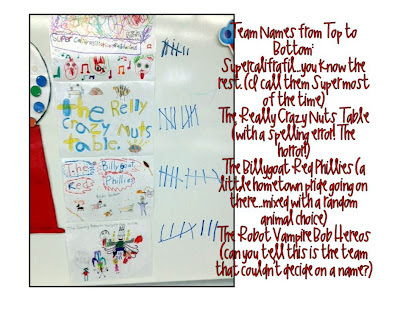 Super
The Relly
Crazy Nuts
table.
The Billygoat
Red Phillies
Team Names from Top to
Bottom:
Supercalifrafil...you know the
rest. (I call them Super most
of the time)
The Really Crazy Nuts Table
(with a spelling error! The
horror!)
The Billygoat Red Phillies (a
little hometown pride going on
there...mixed with a random
animal choice)
The Robot Vampire Bob Hereos
(can you tell this is the team
that couldn't decide on a name?)